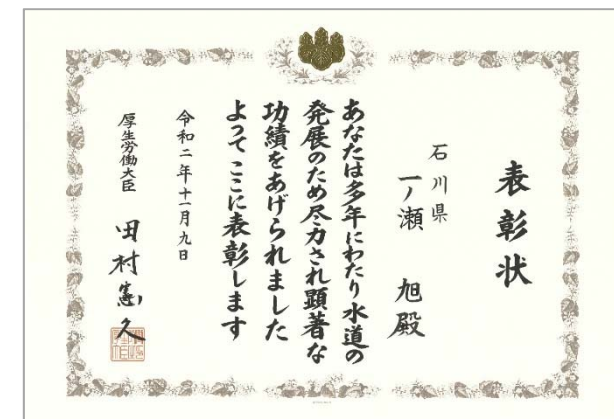 表彰状
石川県
一ノ瀬 旭殿
あなたは多年にわたり水道の
発展のため尽力され顕著な
功績をあげられました
よってここに表彰します
令和二年十一月九日
厚生労働大臣 田村憲久